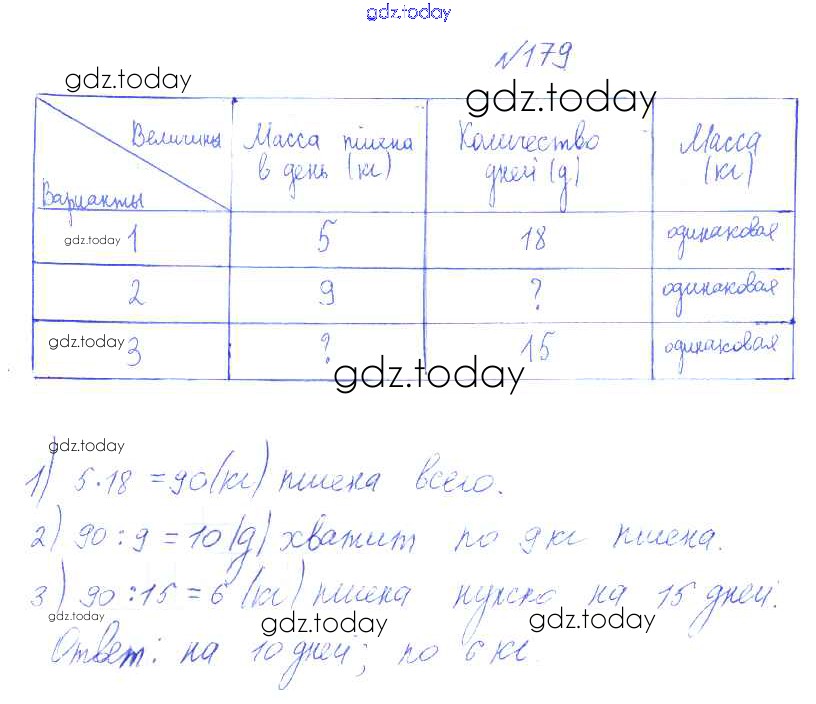 gdz.today
№179
gdz.today
gdz.today
Величины
Варианты
Масса пшена в день (кг)
Количество дней (д)
Масса (кг)
gdz.today 1 5 18 одинаковая
2 9 ? одинаковая
gdz.today 3 ? 15 одинаковая
gdz.today
gdz.today
1) 5·18 =90(кг) пшена всего.
2) 90:9=10(д) хватит по 9 кг пшена.
3) 90:15=6 (кг) пшена нужно на 15 дней.
gdz.today gdz.today gdz.today
Ответ: на 10 дней; по 6 кг.